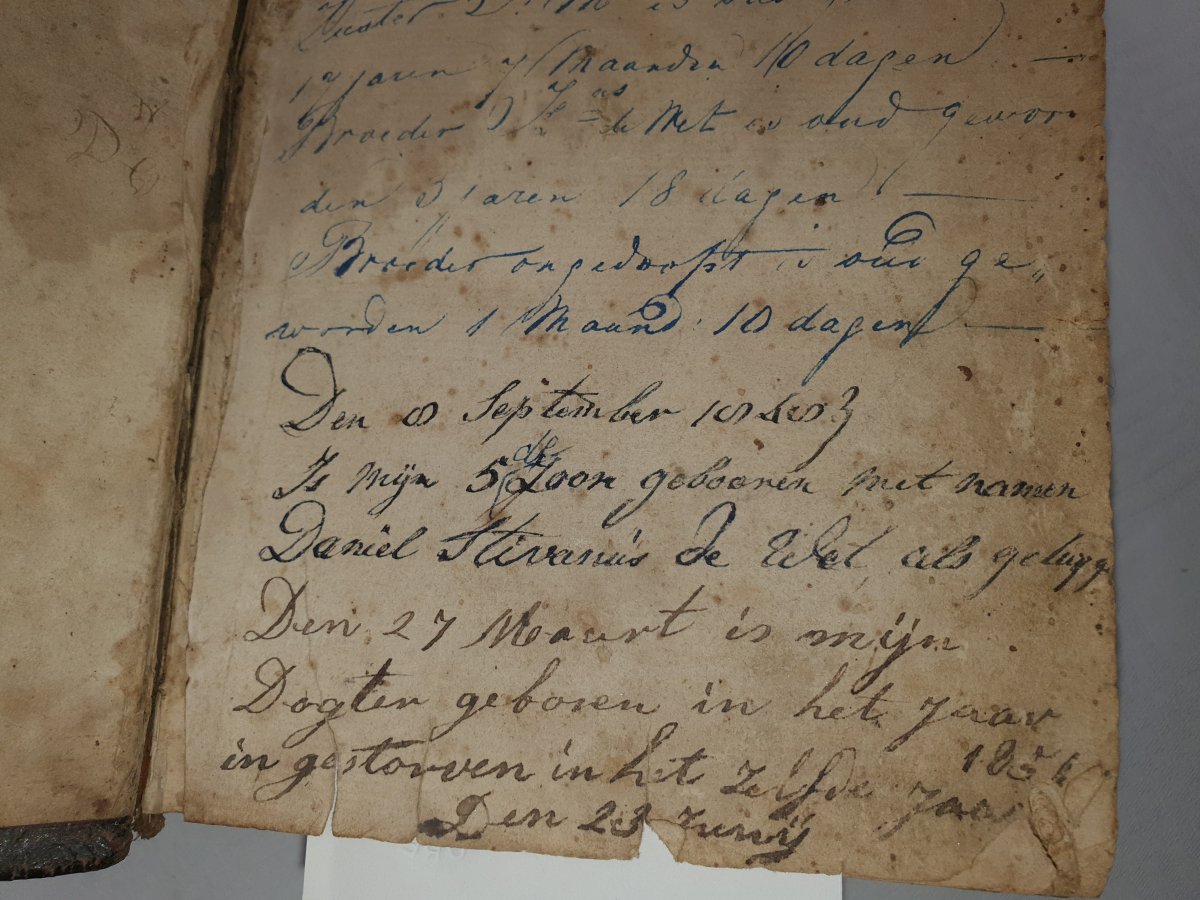 D W
17 jaren 7 Maanden 16 dagen —
Broeder Js de Wet is oud gewor
den 3 jaren 18 dagen —
Broeder ongedoopt is oud ge„
worden 1 Maand 10 dagen —
Den 8 September 1848
Is Mijn 5de Zoon gebooren met namen
Daniël Stivanús De Wet, als getuygen
Den 27 Maart is mijn
Dogter geboren in het Jaar
1854
in gestorven in het Zelfde Jaar
Den 23 Junij